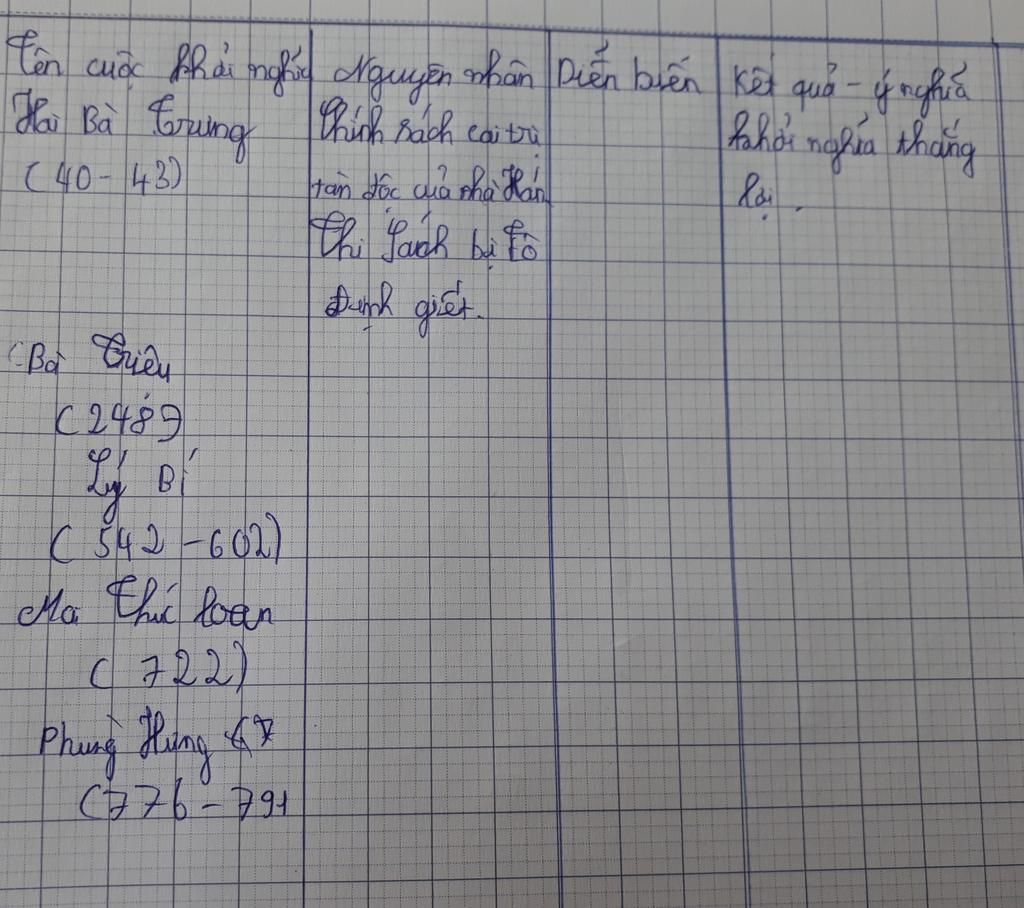 Tên cuộc khởi nghĩa Nguyên nhân Diễn biến Kết quả - ý nghĩa
Hai Bà Trưng Chính sách cai trị khởi nghĩa thắng
(40 - 43) tàn độc của nhà Hán lợi.
Thi Sách bị Tô
Định giết.
Bà Triệu
(248)
Lý Bí
(542 - 602)
Mai Thúc Loan
(722)
Phùng Hưng
(776 - 791